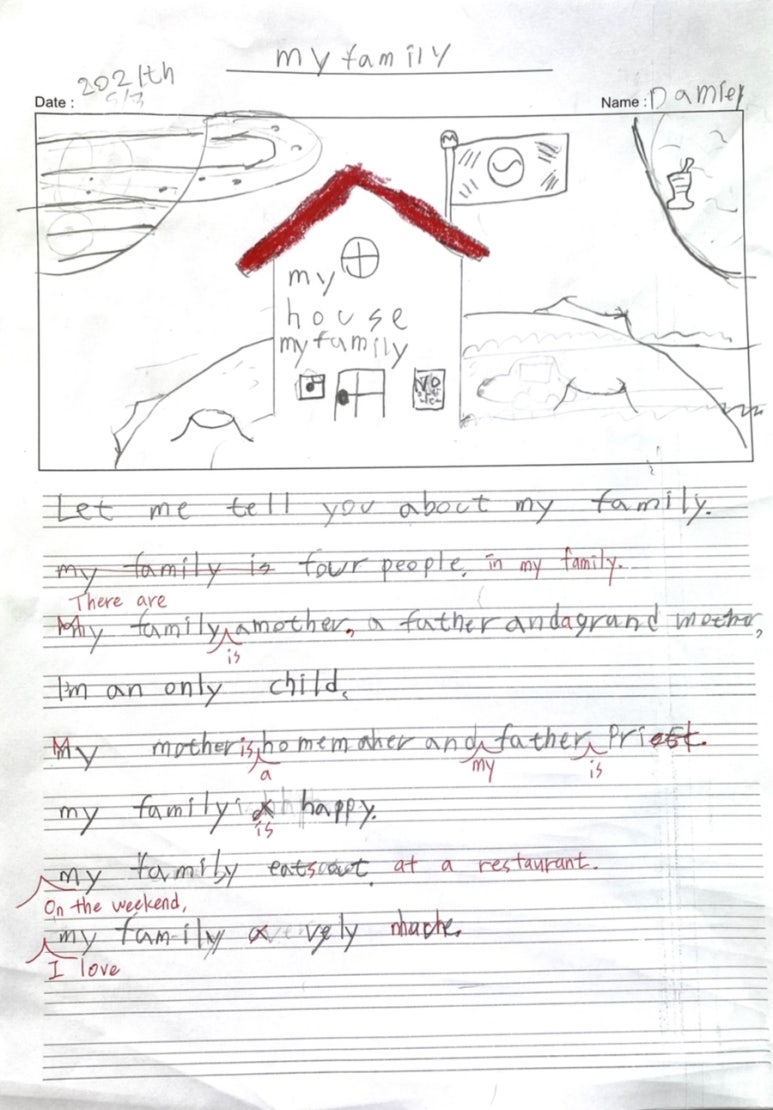 my family
2021th
Date : 5/3
Name : Damien
my
house
my family
NO
Let me tell you about my family.
my family is four people. in my family.
There are
My family amother, a father andagrand mother,
is
I'm an only child.
My mother is homemaker and father priest.
a my is
my family happy.
is
my family eatsout at a restaurant.
On the weekend,
my family very muche.
I love